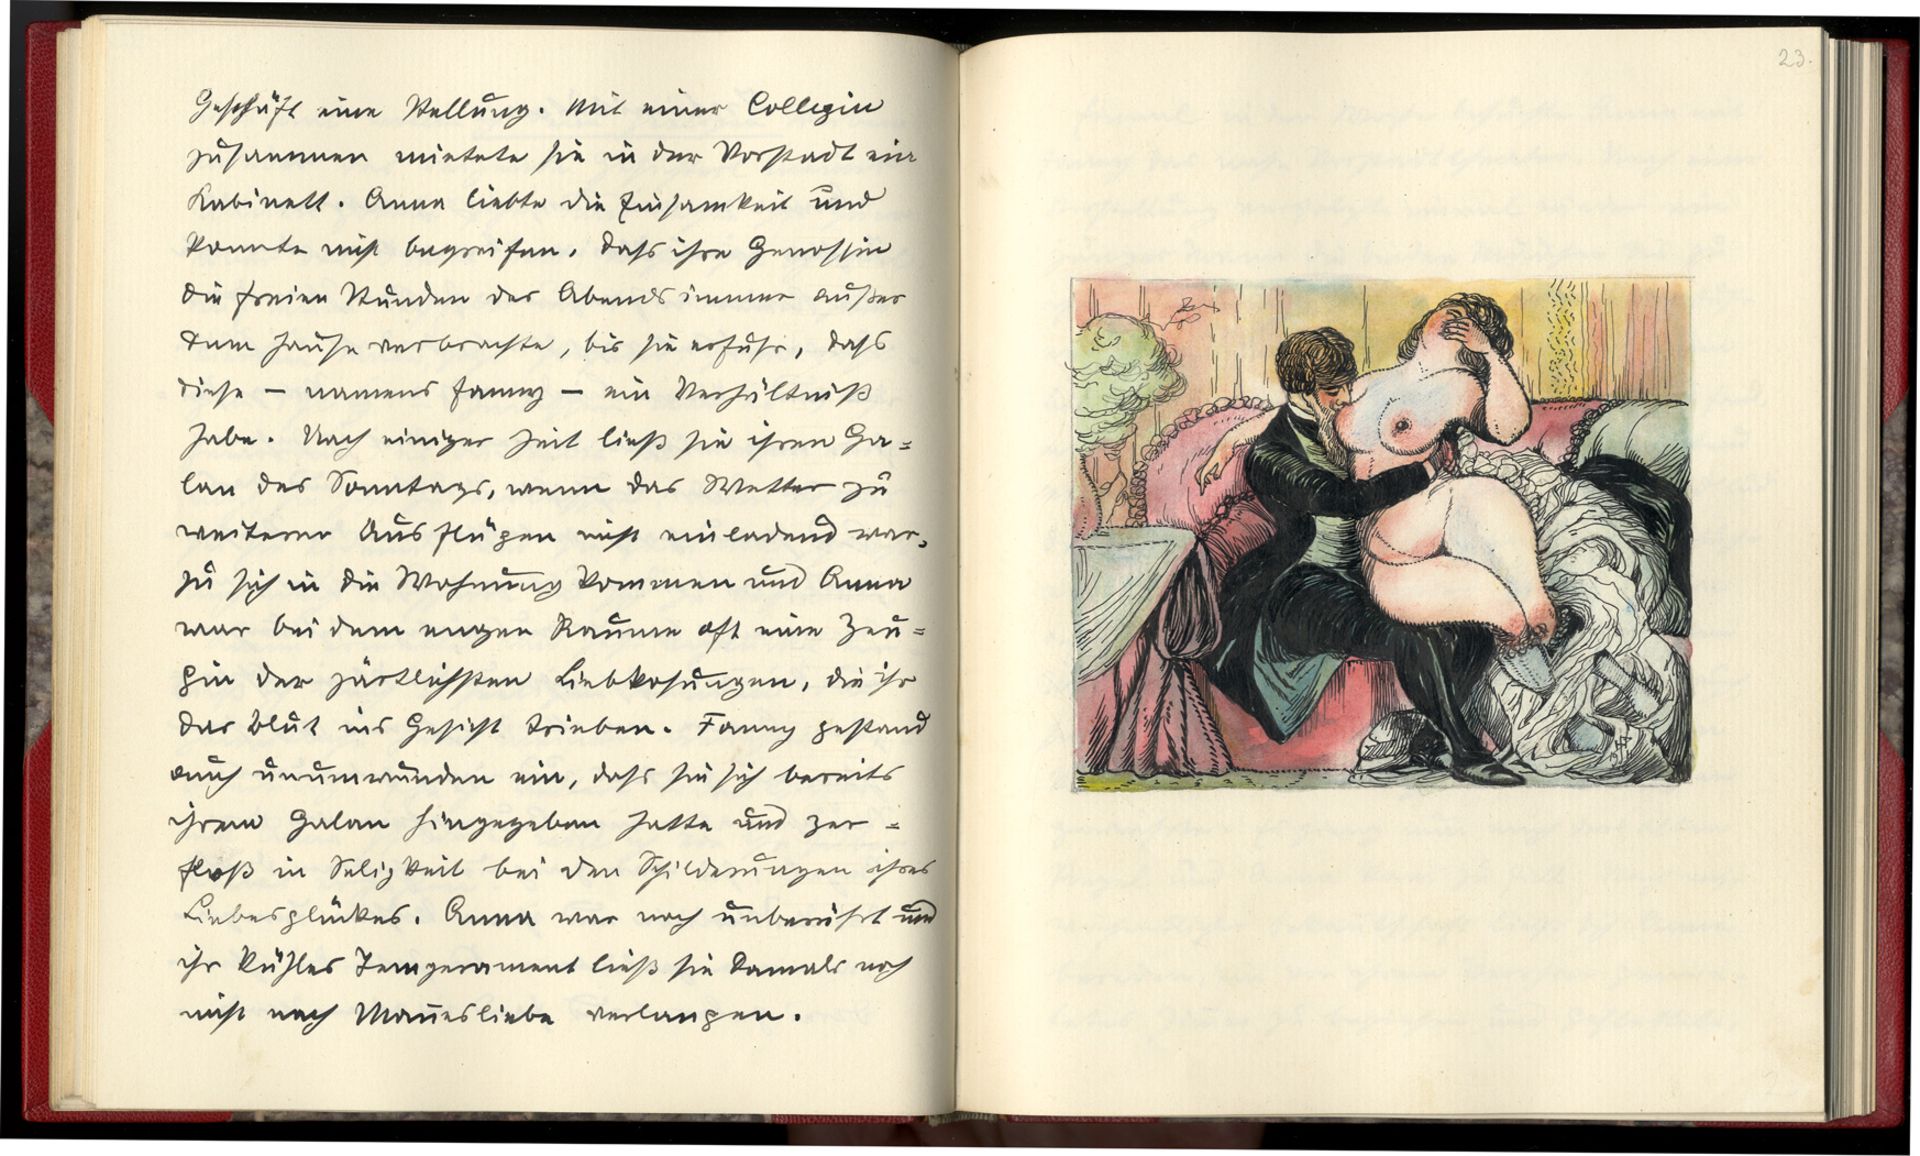 Geschäft eine Stellung. Mit einer Collegin
zusammen mietete sie in der Vorstadt ein
Kabinett. Anna liebte die Einsamkeit und
konnte nicht begreifen, dass ihre Genossin
die freien Stunden des Abends immer außer
dem Hause verbrachte, bis sie erfuhr, dass
diese – namens Fanny – ein Verhältniß
habe. Nach einiger Zeit ließ sie ihren Ga=
lan des Sonntags, wenn das Wetter zu
weiteren Ausflügen nicht einladend war,
zu sich in die Wohnung kommen und Anna
war bei dem engen Raume oft eine Zeu=
gin der zärtlichsten Liebkosungen, die ihr
das Blut ins Gesicht trieben. Fanny gestand
auch unumwunden ein, dass sie sich bereits
ihrem Galan hingegeben hatte und zer=
floß in Seligkeit bei den Schilderungen ihres
Liebesglückes. Anna war noch unberührt und
ihr kühles Temperament ließ sie damals noch
nicht nach Mannesliebe verlangen.
23.